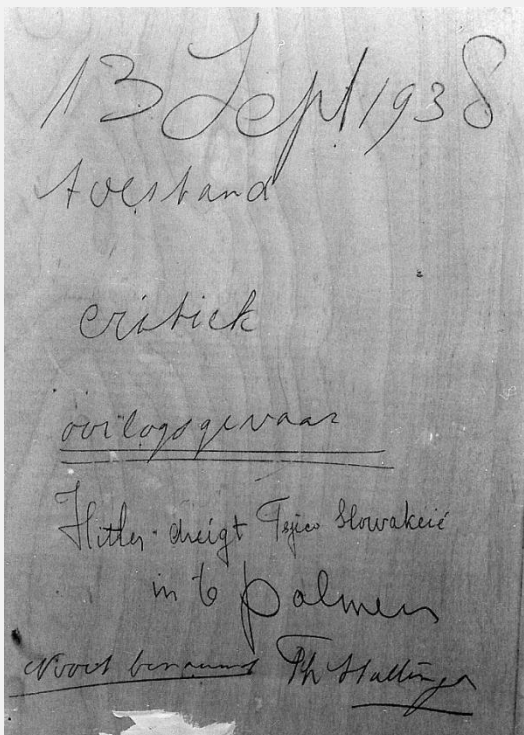 13 Sept 1938
toestand
critiek
oorlogsgevaar
Hitler dreigt Tsjico Slowakeié
in t palmen
Nooit benauwd Ph Hallinga